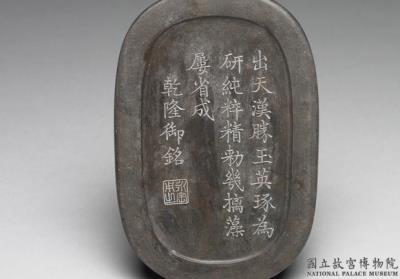 出天漢勝玉英琢為
研純粹精勅幾摛藻
屢省成
乾隆御銘
國立故宮博物院
NATIONAL PALACE MUSEUM